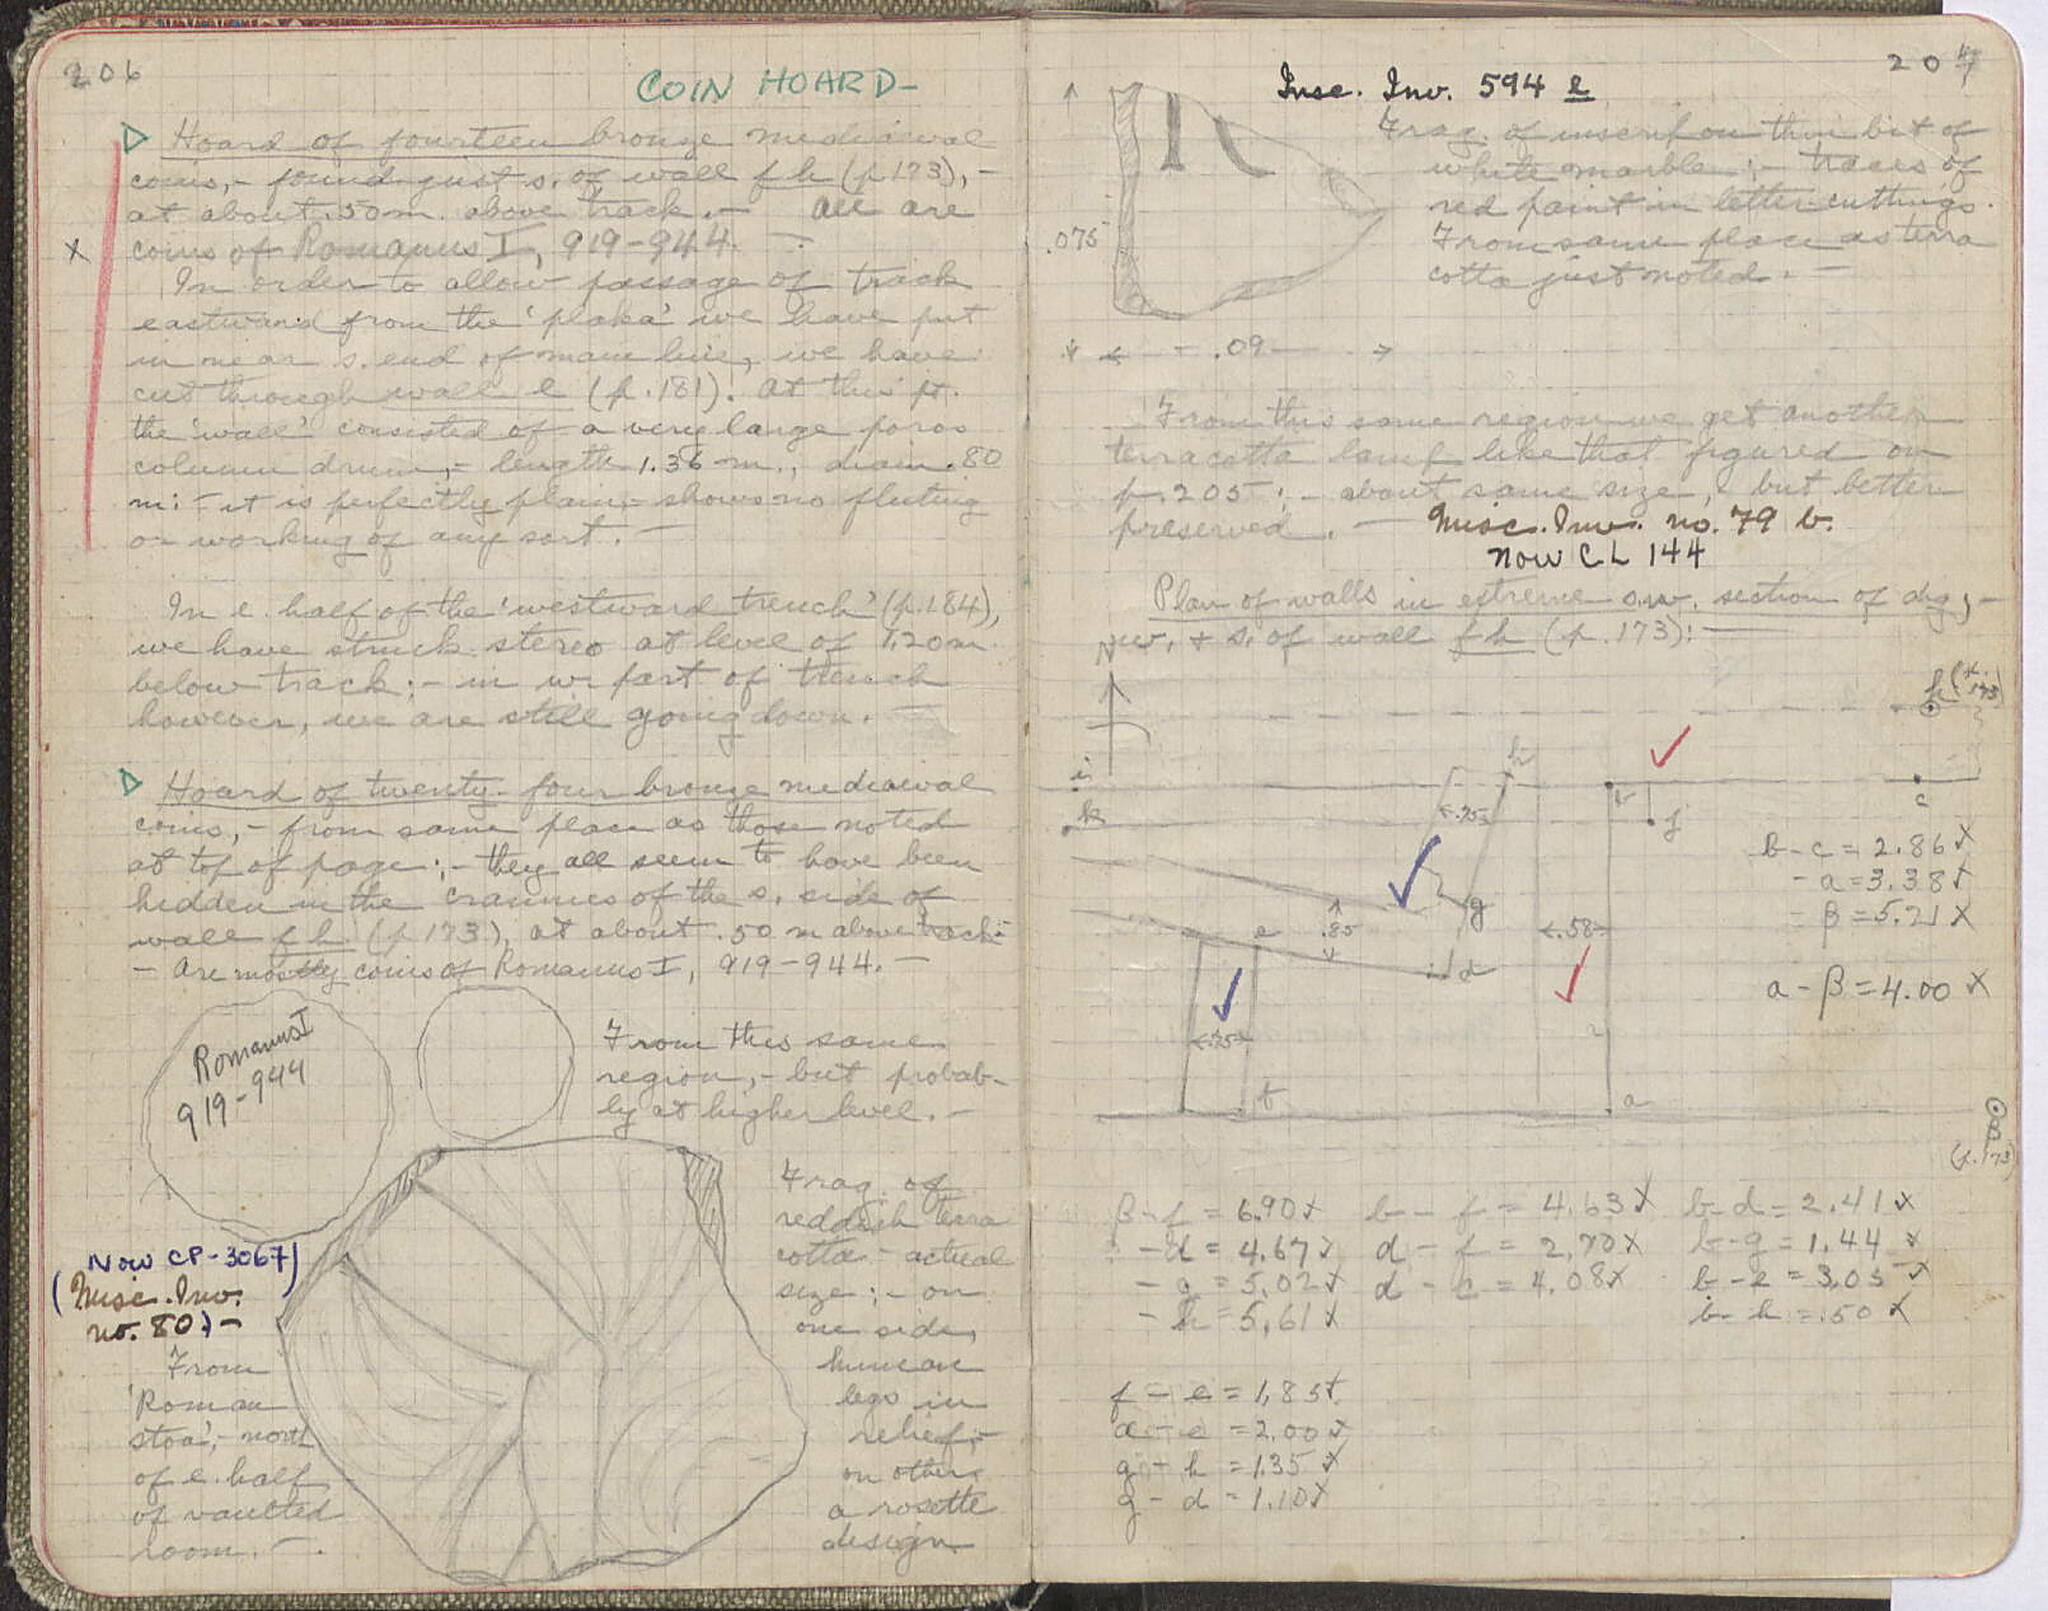 206
COIN HOARD-
Hoard of fourteen bronze mediaeval
coins,- found just s. of wall fh (p.173),-
at about .50 m. above track.- All are
x coins of Romanus I, 919-944. -
In order to allow passage of track
eastward from the 'plaka' we have put
in near s. end of main line, we have
cut through wall e (p.181). At this pt.
the 'wall' consisted of a very large poros
column drum,- length 1.36 m., diam .80
m: - it is perfectly plain,- shows no fluting
or working of any sort. -
In e. half of the 'westward trench' (p.184),
we have struck stereo at level of 1.20 m.
below track:- in w. part of trench
however, we are still going down. -
Hoard of twenty-four bronze mediaeval
coins,- from same place as those noted
at top of page:- they all seem to have been
hidden in the crannies of the s. side of
wall fh (p.173), at about .50 m above track:-
- Are mostly coins of Romanus I, 919-944. -
Romanus I
919-944
From this same
region,- but probab-
ly at higher level. -
Frag. of
reddish terra
cotta - actual
size:- on
one side,
human
legs in
relief,-
on other
a rosette
design
Now CP-3067)
(Misc. Inv.
no. 80)-
From
'Roman
stoa',- north
of e. half
of vaulted
room. -.
207
Insc. Inv. 594 e
Frag. of inscrip on thin bit of
white marble:- traces of
red paint in letter cuttings.
From same place as terra
cotta just noted. -
.075
.09
From this same region we get another
terracotta lamp like that figured on
p.205:- about same size, but better
preserved. - Misc. Inv. no. 79 b.
Now CL 144
Plan of walls in extreme s.w. section of dig,-
w. + s. of wall fh (p.173):-
N
h (p. 173)
i
h
b
c
k
.75
j
g
e
.85
d
.58
.75
f
a
β
(p.173)
b-c = 2.86 x
- a = 3.38 x
- β = 5.21 x
a-β = 4.00 x
β-f = 6.90 x b-f = 4.63 x b-d = 2.41 x
- d = 4.67 x d-f = 2.70 x b-g = 1.44 x
- g = 5.02 x d-c = 4.08 x b-e = 3.05 x
- h = 5.61 x b-h = .50 x
f-e = 1.85 x
d-e = 2.00 x
g-h = 1.35 x
g-d = 1.10 x